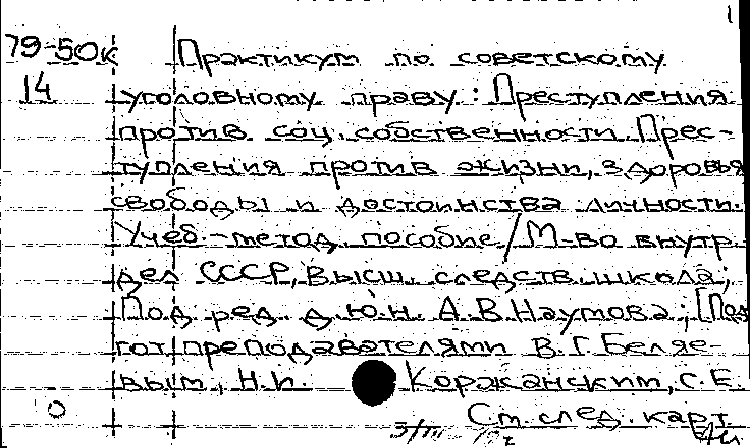 1
79-50к Практикум по советскому
14 уголовному праву: Преступления
против соц. собственности. Прес-
тупления против жизни, здоровья
свободы и достоинства личности.
Учеб.-метод. пособие / М-во внутр.
дел СССР, Высш. следств. школа;
Под ред. д.ю.н. А.В. Наумова; [Под
гот. преподавателями В.Г. Беляе-
вым, Н.И. Коржанским, С.Е.
См. след. карт.